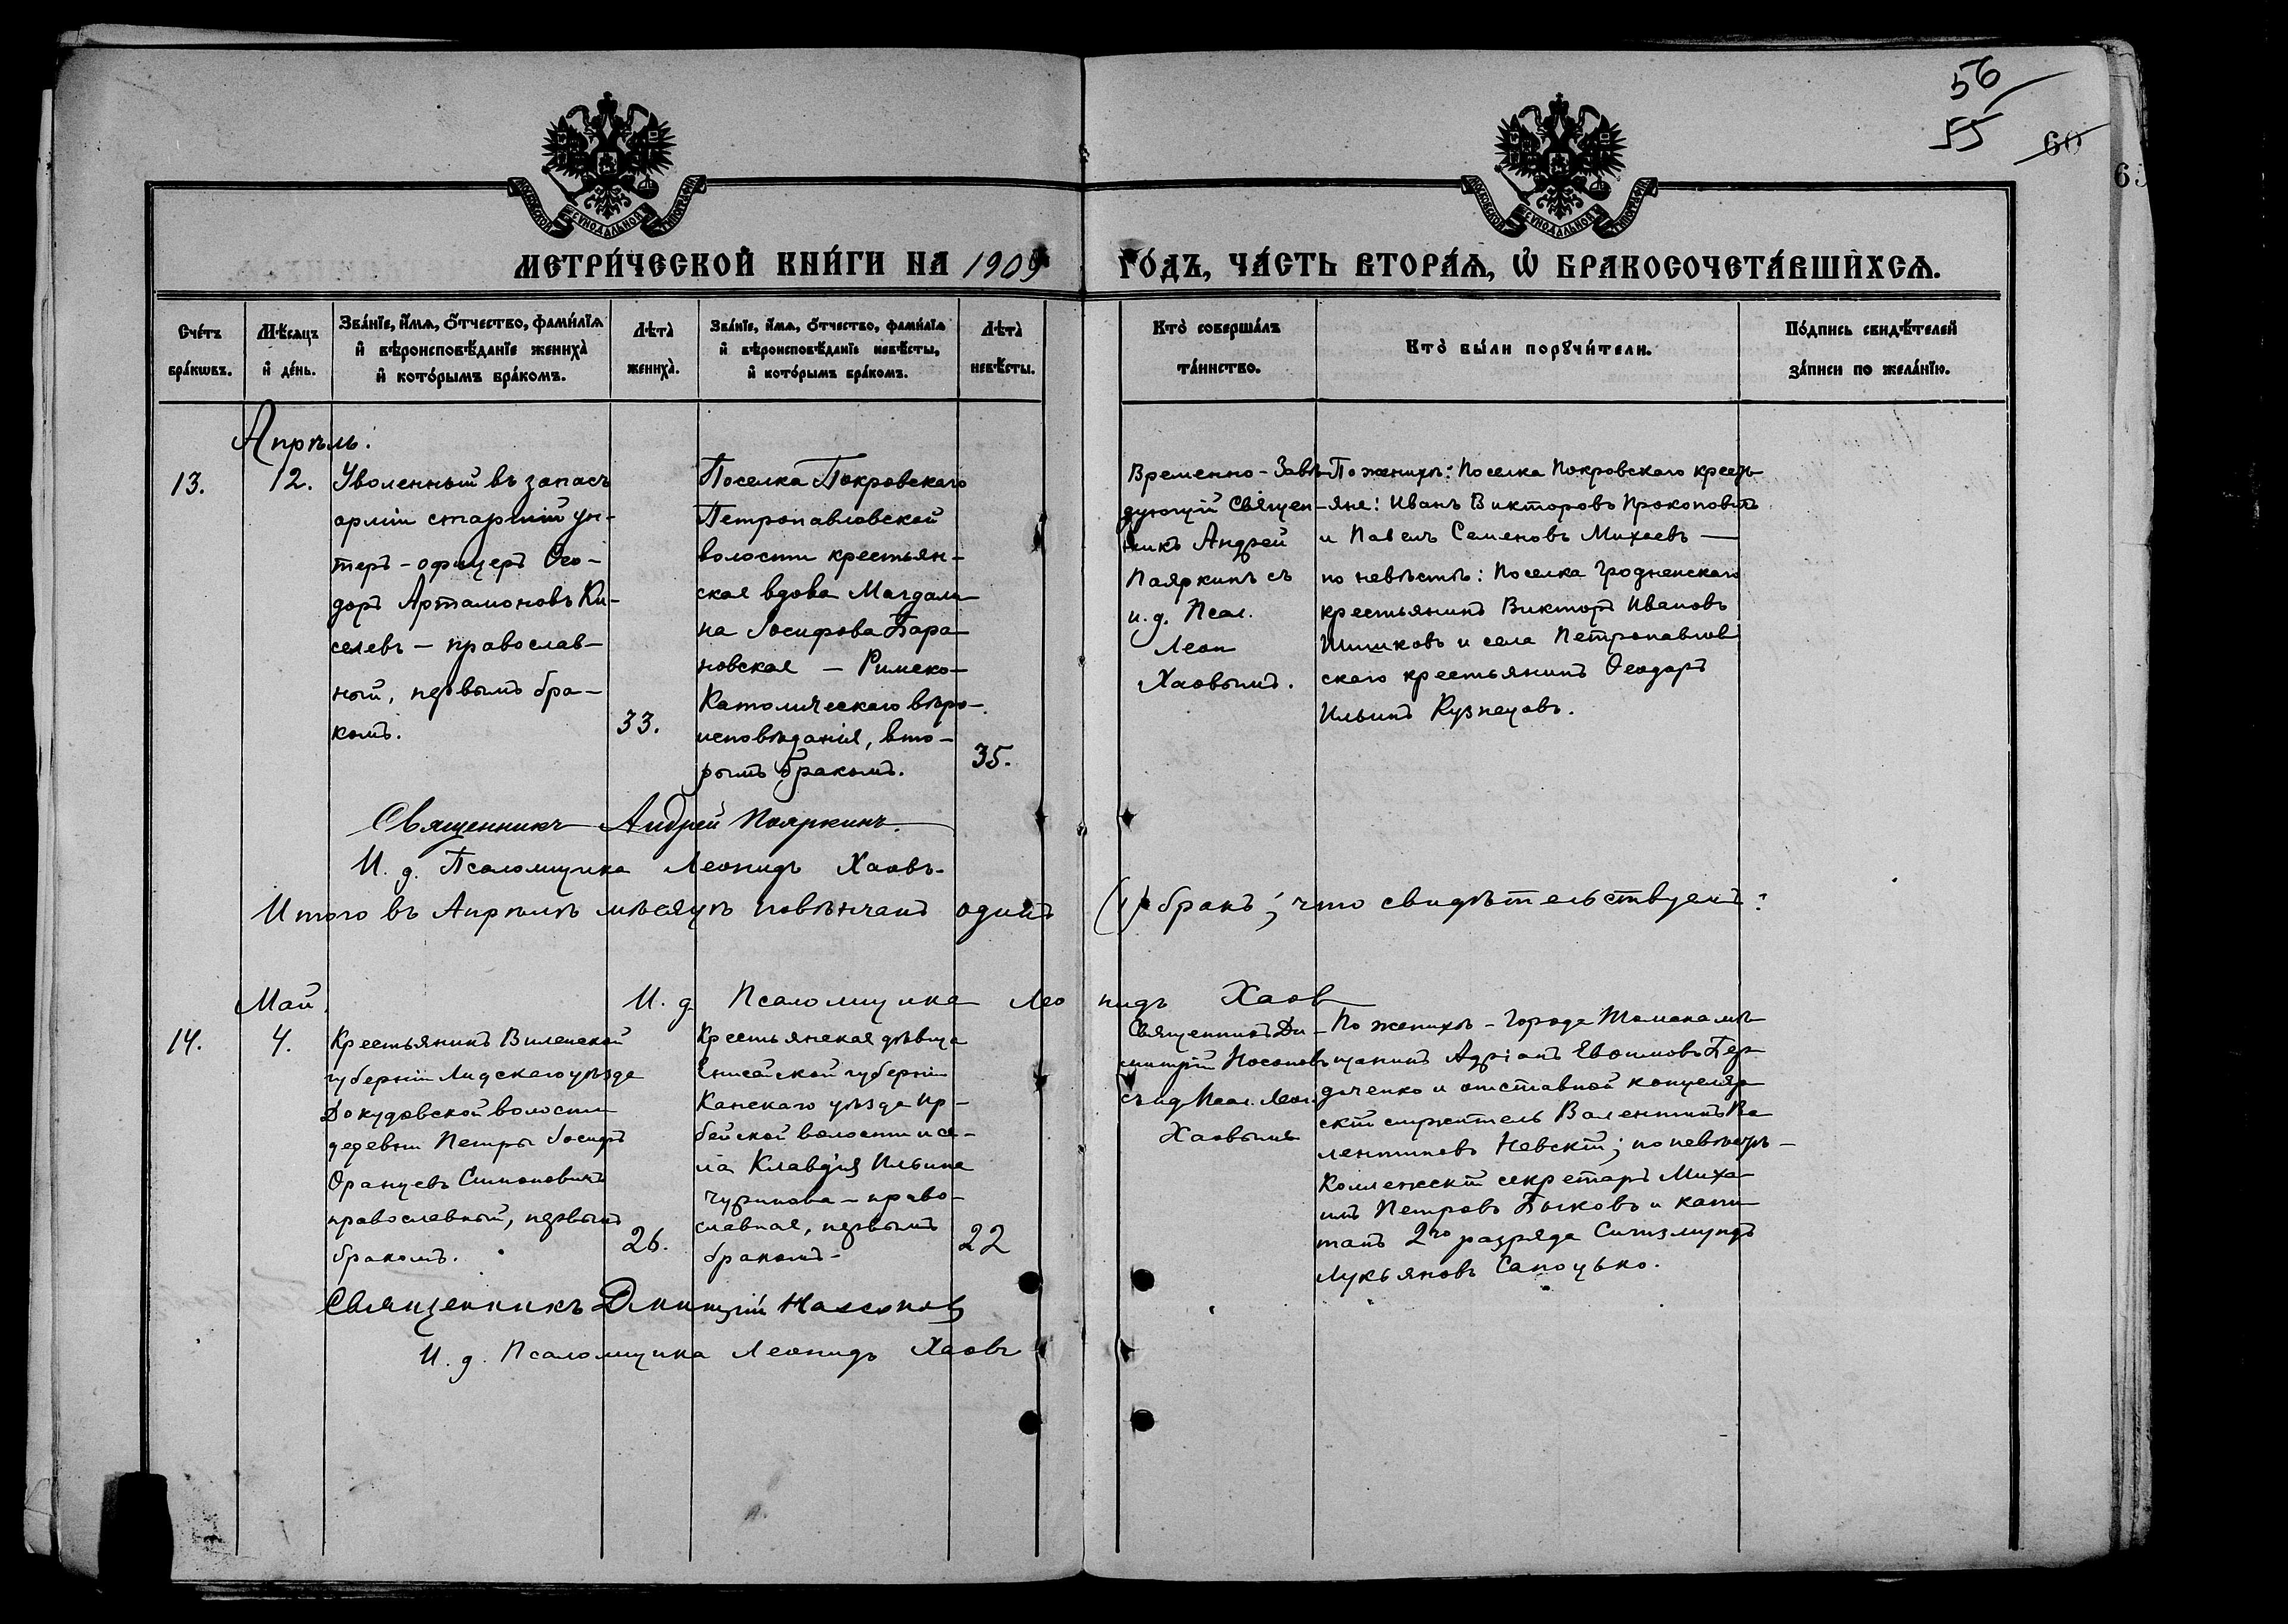 56
55
60
МОСКОВСКОЙ СѴНОДАЛЬНОЙ ТИПОГРАФІИ
МОСКОВСКОЙ СѴНОДАЛЬНОЙ ТИПОГРАФІИ
МЕТРИ́ЧЕСКОЙ КНИ́ГИ НА 1909
ГО́ДЪ, ЧА́СТЬ ВТОРА́Ѧ, Ѡ҆ БРАКОСОЧЕТА́ВШИХСѦ.
Сче́тъ бра́кѡвъ.
Мѣ́сѧцъ и҆ де́нь.
Зва́нїе, и҆́мѧ, о҆́тчество, фами́лїѧ и҆ вѣроисповѣ́данїе жениха̀ и҆ кото́рымъ бра́комъ.
Лѣ́та жениха̀.
Зва́нїе, и҆́мѧ, о҆́тчество, фами́лїѧ и҆ вѣроисповѣ́данїе невѣ́сты, и҆ кото́рымъ бра́комъ.
Лѣ́та невѣ́сты.
Кто̀ соверша́лъ та́инство.
Кто̀ бы́ли порꙋчи́тели.
По́дпись свидѣ́телей за́писи по жела́нїю.
Апрѣль.
13.
12.
Уволенный въ запасъ
арміи старшій ун-
теръ-офицеръ Ѳео-
доръ Артамоновъ Ки-
селевъ - православ-
ный, первымъ бра-
комъ.
33.
Поселка Покровскаго
Петропавловской
волости крестьян-
ская вдова Магдали-
на Іосифова Бара-
новская - Римско-
Католическаго вѣро-
исповѣданія, вто-
рымъ бракомъ.
35.
Временно-Завѣ-
дующій Священ-
никъ Андрей
Пояркинъ съ
и.д. Псал.
Леон
Хаовымъ.
По женихѣ: Поселка Покровскаго кресть-
яне: Иванъ Викторовъ Прокоповичъ
и Павелъ Семеновъ Михеевъ —
по невѣстѣ: Поселка Гродненскаго
крестьянинъ Викторъ Ивановъ
Шишковъ и села Петропавлов
скаго крестьянинъ Ѳеодоръ
Ильинъ Кузнецовъ.
Священникъ Андрей Пояркинъ.
И. д. Псаломщика Леонидъ Хаовъ.
Итого въ Апрѣлѣ мѣсяцѣ повѣнчанъ одинъ (1) бракъ; что свидѣтельствуемъ:
И. д. Псаломщика Леонидъ Хаов
Май.
14.
4.
Крестьянинъ Виленской
губерніи Лидскаго уѣзда
Докудовской волости
деревни Петры Іосифъ
Францевъ Симоновичъ
православный, первымъ
бракомъ.
26.
Крестьянская дѣвица
Енисейской губерніи
Канскаго уѣзда Ир-
бейской волости и се-
ла Клавдія Ильина
Чурикова - право-
славная, первымъ
бракомъ-
22
Священникъ Ди-
митрій Носоновъ
съ ид Псал. Леон.
Хаовымъ
По женихѣ - города Томска мѣ-
щанинъ Адріанъ Евѳимовъ Бер-
дченко и отставной канцеляр
скій служитель Валентинъ Ва
лентиновъ Невскій; по невѣстѣ-
Коллежскій секретарь Миха-
илъ Петровъ Быковъ и капи
танъ 2го разряда Сигизмундъ
Лукьяновъ Сапоцько.
Священникъ Дмитрій Насонов
И. д. Псаломщика Леонидъ Хаовъ